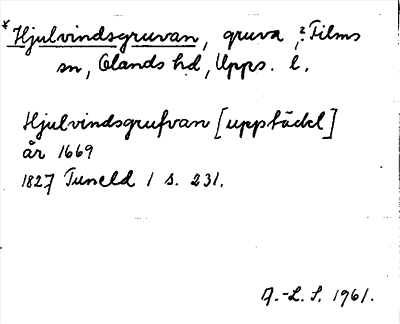 *Hjulvindsgruvan, gruva, ?Films
sn, Olands hd, Upps. l.
Hjulvindsgrufvan [upptäckt]
år 1669
1827 Tuneld 1 s. 231.
A.-L. S. 1961.